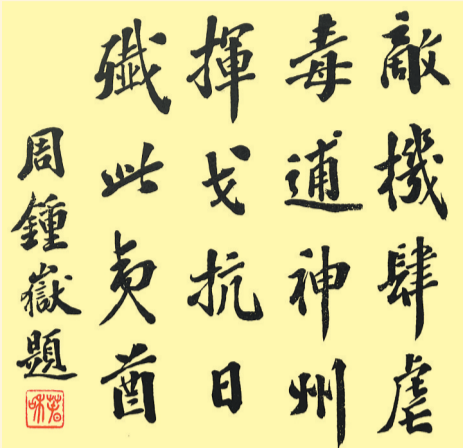 敵機肆虐
毒逋神州
揮戈抗日
殲此夷酋
周鍾嶽題